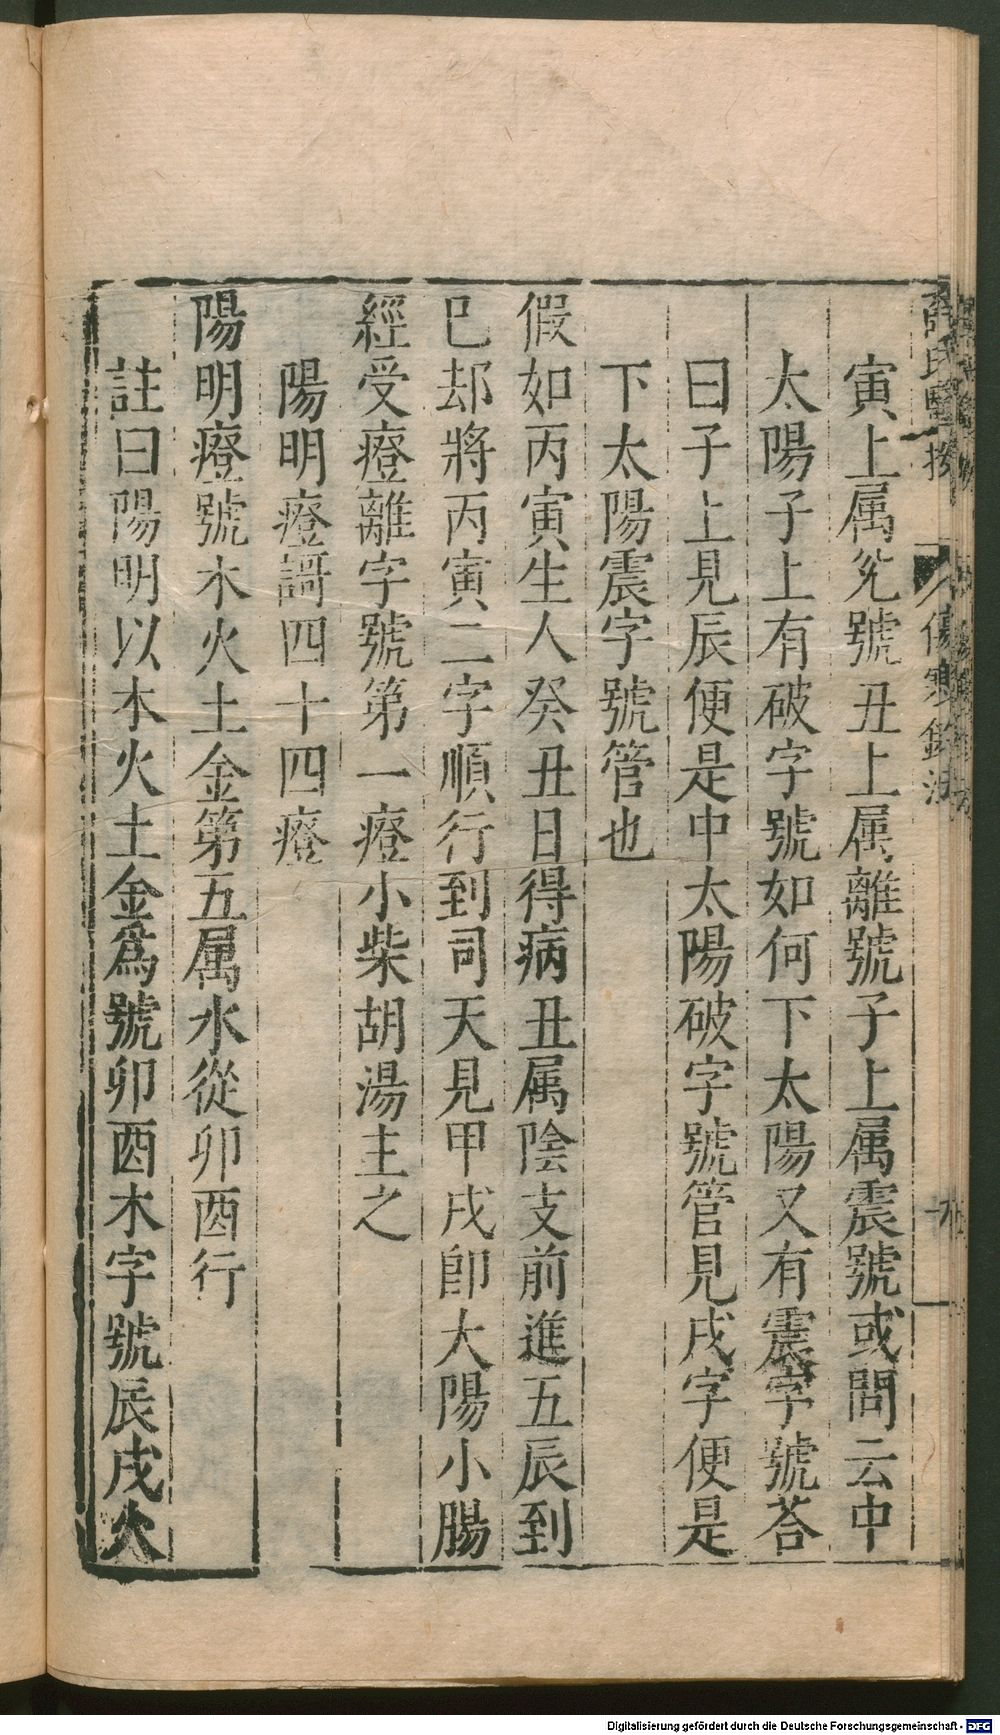 薛氏醫按 傷寒鈐法
寅上属兊號丑上属離號子上属震號或問云中
太陽子上有破字號如何下太陽又有震字號荅
曰子上見辰便是中太陽破字號管見戌字便是
下太陽震字號管也
假如丙寅生人癸丑日得病丑属陰支前進五辰到
巳却將丙寅二字順行到司天見甲戌卽大陽小腸
經受癥離字號第一癥小柴胡湯主之
陽明癥謌四十四癥
陽明癥號木火土金第五属水從卯酉行
註曰陽明以木火土金爲號卯酉木字號辰戌火
Digitalisierung gefördert durch die Deutsche Forschungsgemeinschaft - DFG